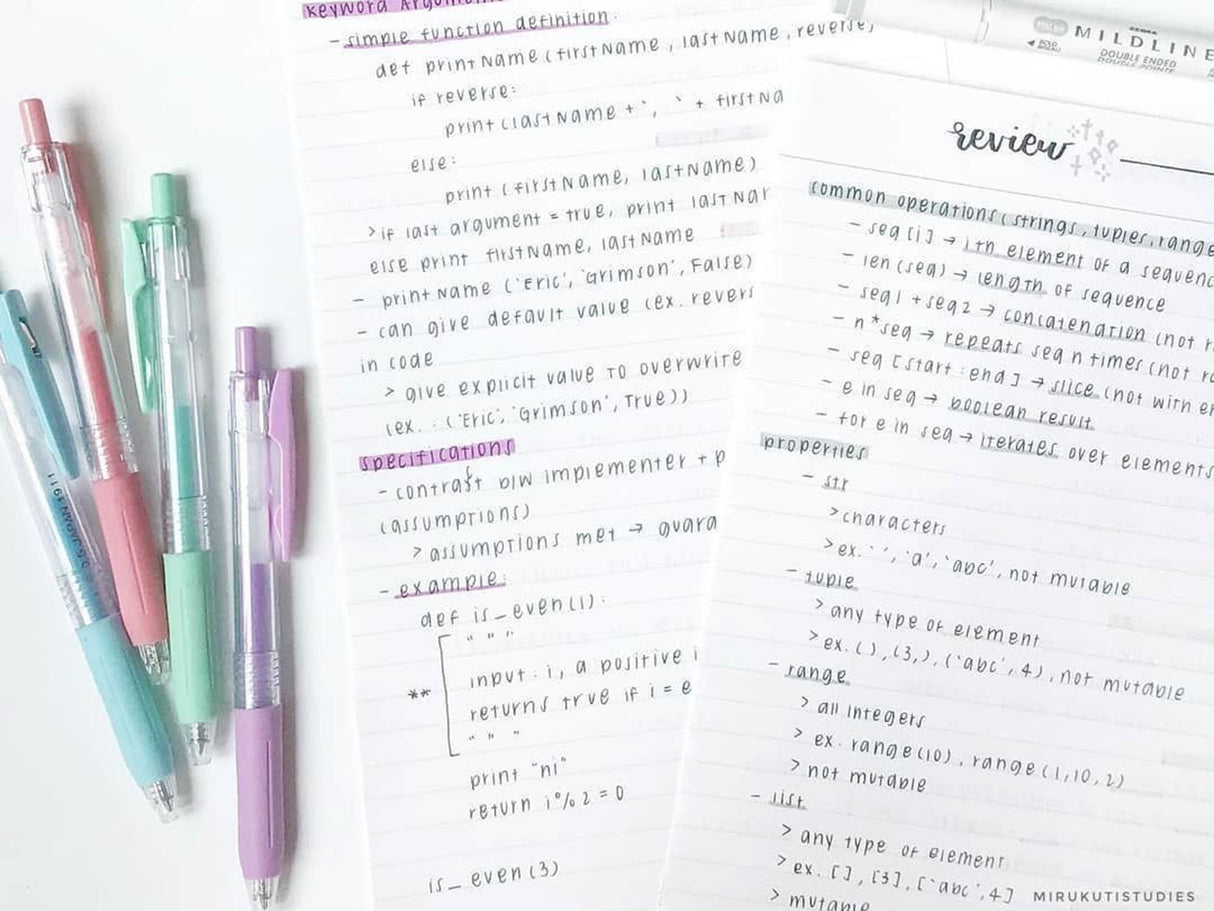 keyword
- simple function definition:
def printName (firstName, lastName, reverse)
if reverse:
print (lastName + `, ` + firstNa
else:
print (firstName, lastName)
> if last argument = true, print lastNa
else print firstName, lastName
- printName (`Eric', `Grimson', False)
- can give default value (ex. revers
in code
> give explicit value to overwrite
(ex. : (`Eric', `Grimson', True))
specifications
- contrast b/w implementer + p
(assumptions)
> assumptions met → guara
- example:
def is_even(i):
" " "
input: i, a positive i
** returns true if i = e
" " "
print "hi"
return i % 2 = 0
is_even(3)
ZEBRA
MILDLINE
DOUBLE ENDED
DOUBLE POINTE
review
common operations (strings, tuples, range
- seq [i] → ith element of a sequenc
- len (seq) → length of sequence
- seq1 + seq2 → concatenation (not r
- n*seq → repeats seq n times (not ra
- seq [start : end] → slice (not with en
- e in seq → boolean result
- for e in seq → iterates over elements
properties
- str
> characters
> ex. ` ', `a', `abc', not mutable
- tuple
> any type of element
> ex. (), (3,), (`abc', 4), not mutable
- range
> all integers
> ex. range(10), range(1,10,2)
> not mutable
- list
> any type of element
> ex. [], [3], [`abc', 4]
> mutable
0.5 JAPAN 1911
MIRUKUTISTUDIES